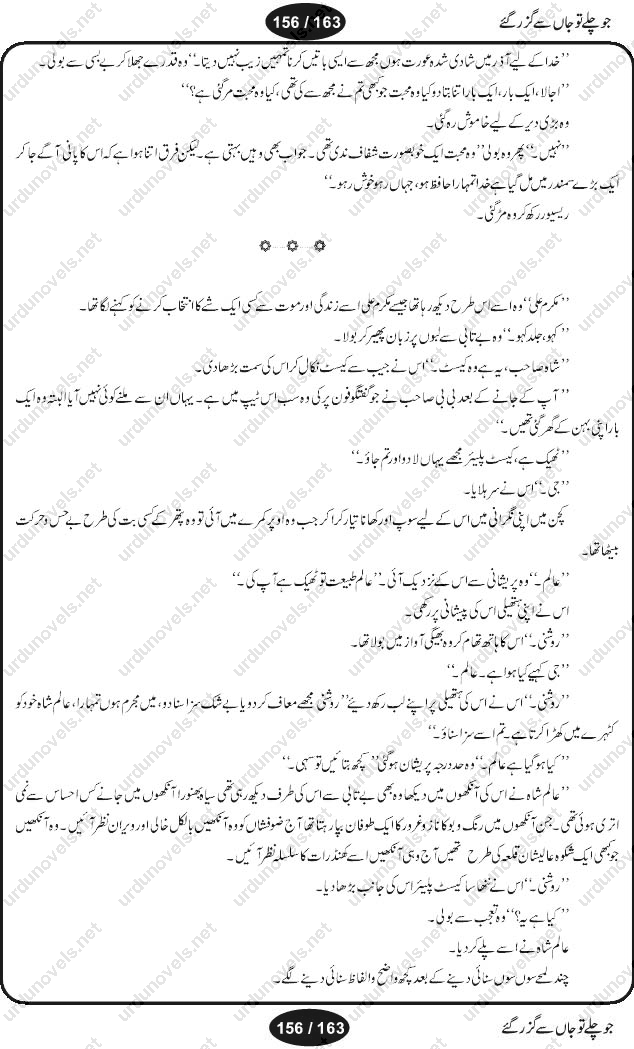 جو چلے تو جاں سے گزر گئے
156 / 163
’’خدا کے لیے آذر میں شادی شدہ عورت ہوں مجھ سے ایسی باتیں کرنا تمہیں زیب نہیں دیتا۔‘‘ وہ قدرے جھلا کر بے بسی سے بولی۔
’’اجالا، ایک بار، ایک بار اتنا بتا دو کیا وہ محبت جو کبھی تم نے مجھ سے کی تھی، کیا وہ محبت مر گئی ہے؟‘‘
وہ بڑی دیر کے لیے خاموش رہ گئی۔
’’نہیں۔‘‘ پھر وہ بولی ’’وہ محبت ایک خوبصورت شفاف ندی تھی۔ جو اب بھی وہیں بہتی ہے۔ لیکن فرق اتنا ہوا ہے کہ اس کا پانی آگے جا کر
ایک بڑے سمندر میں مل گیا ہے خدا تمہارا حافظ ہو، جہاں رہو خوش رہو۔‘‘
ریسیور رکھ کر وہ مڑ گئی۔
’’مکرم علی‘‘ وہ اسے اس طرح دیکھ رہا تھا جیسے مکرم علی اسے زندگی اور موت سے کسی ایک شے کا انتخاب کرنے کو کہنے لگا تھا۔
’’کہو، جلد کہو۔‘‘ وہ بے تابی سے لبوں پر زبان پھیر کر بولا۔
’’شاہ صاحب، یہ ہے وہ کیسٹ۔‘‘ اس نے جیب سے کیسٹ نکال کر اس کی سمت بڑھا دی۔
’’آپ کے جانے کے بعد بی بی صاحب نے جو گفتگو فون پر کی وہ سب اس ٹیپ میں ہے۔ یہاں ان سے ملنے کوئی نہیں آیا البتہ وہ ایک
بار اپنی بہن کے گھر گئی تھیں۔‘‘
’’ٹھیک ہے، کیسٹ پلیئر مجھے یہاں لا دو اور تم جاؤ۔‘‘
’’جی۔‘‘ اس نے سر ہلایا۔
کچن میں اپنی نگرانی میں اس کے لیے سوپ اور کھانا تیار کرا کر جب وہ اوپر کمرے میں آئی تو وہ پتھر کے کسی بت کی طرح بے حس و حرکت
بیٹھا تھا۔
’’عالم۔‘‘ وہ پریشانی سے اس کے نزدیک آئی۔ ’’عالم طبیعت تو ٹھیک ہے آپ کی۔‘‘
اس نے اپنی ہتھیلی اس کی پیشانی پر رکھی۔
’’روشنی۔‘‘ اس کا ہاتھ تھام کر وہ بھیگی آواز میں بولا تھا۔
’’جی کہیے کیا ہوا ہے۔ عالم۔‘‘
’’روشنی۔‘‘ اس نے اس کی ہتھیلی پر اپنے لب رکھ دیئے ’’روشنی مجھے معاف کر دو یا بے شک سزا سنا دو، میں مجرم ہوں تمہارا، عالم شاہ خود کو
کٹہرے میں کھڑا کرتا ہے۔ تم اسے سزا سناؤ۔‘‘
’’کیا ہو گیا ہے عالم۔‘‘ وہ حد درجہ پریشان ہو گئی ’’کچھ بتائیں تو سہی۔‘‘
’’عالم شاہ نے اس کی آنکھوں میں دیکھا وہ بھی بے تابی سے اس کی طرف دیکھ رہی تھی سیاہ بھنورا آنکھوں میں جانے کس احساس سے نمی
اتری ہوئی تھی۔ جن آنکھوں میں رنگ و بو کا ناز و غرور کا ایک طوفان بپا رہتا تھا آج ضوفشاں کو وہ آنکھیں بالکل خالی اور ویران نظر آئیں۔ وہ آنکھیں
جو کبھی ایک شکوہ عالیشان قلعہ کی طرح تھیں آج وہی آنکھیں اسے کھنڈرات کا سلسلہ نظر آئیں۔
’’روشنی۔‘‘ اس نے ننھا سا کیسٹ پلیئر اس کی جانب بڑھا دیا۔
’’کیا ہے یہ؟‘‘ وہ تعجب سے بولی۔
عالم شاہ نے اسے پلے کر دیا۔
چند لمحے سوں سوں سنائی دینے کے بعد کچھ واضح والفاظ سنائی دینے لگے۔
جو چلے تو جاں سے گزر گئے
156 / 163
urdunovels.net